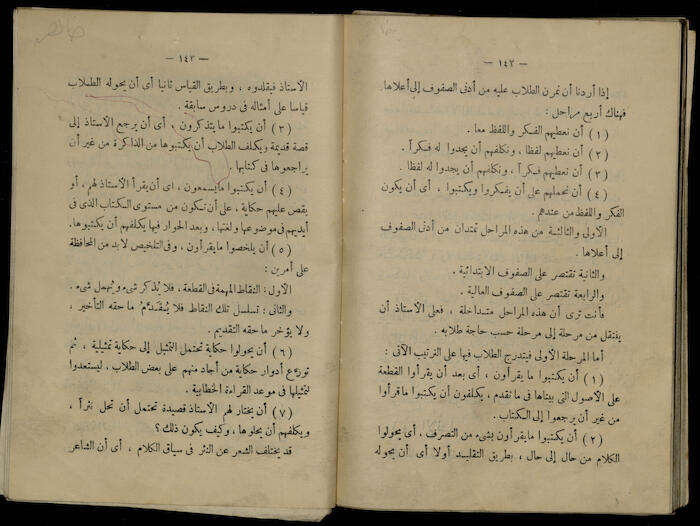 — ١٤٢ —
إذا أردنا أن نمرن الطلاب عليه من أدنى الصفوف إلى أعلاها
فهناك أربع مراحل :
( ١ ) أن نعطيهم الفكر واللفظ معا .
( ٢ ) أن نعطيهم لفظا ، ونكلفهم أن يجدوا له فكراً .
( ٣ ) أن نعطيهم فكراً ، ونكلفهم أن يجدوا له لفظا .
( ٤ ) أن نحملهم على أن يفكروا ويكتبوا ، أى أن يكون
الفكر واللفظ من عندهم .
الأولى والثالثة من هذه المراحل تمتدان من أدنى الصفوف
إلى أعلاها .
والثانية تقتصر على الصفوف الابتدائية .
والرابعة تقتصر على الصفوف العالية .
فأنت ترى أن هذه المراحل متداخلة ، فعلى الأستاذ أن
يفتقل من مرحلة إلى مرحلة حسب حاجة طلابه .
أما المرحلة الأولى فيتدرج الطلاب فيها على الترتيب الآتى :
( ١ ) أن يكتبوا ما يقرأون ، أى بعد أن يقرأوا القطعة
على الأصول التى بيناها فى ما تقدم ، يكلفون أن يكتبوا ما قرأوا
من غير أن يرجعوا إلى الكتاب .
( ٢ ) أن يكتبوا ما يقرأون بشىء من التصرف ، أى يحولوا
الكلام من حال إلى حال ، بطريق التقليد أولا أى أن يحوله
— ١٤٣ —
الأستاذ فيقلدوه ، وبطريق القياس ثانيا أى أن يحوله الطلاب
قياسا على أمثاله فى دروس سابقة .
( ٣ ) أن يكتبوا ما يتذكرون ، أى أن يرجع الأستاذ إلى
قصة قديمة ويكلف الطلاب أن يكتبوها من الذاكرة من غير أن
يراجعوها فى كتابها .
( ٤ ) أن يكتبوا ما يسمعون ، اى أن يقرأ الأستاذ لهم ، أو
يقص عليهم حكاية ، على أن تكون من مستوى الكتاب الذى فى
أيديهم فى موضوعها ولغتها ، وبعد الحوار فيها يكلفهم أن يكتبوها .
( ٥ ) أن يلخصوا ما يقرأون ، وفى التلخيص لابد من المحافظة
على أمرين :
الأول : النقاط المهمة فى القطعة ، فلا يُذكر شىء ويُهمل شىء .
والثانى : تسلسل تلك النقاط فلا يُقدَّمُ ما حقه التأخير ،
ولا يؤخر ما حقه التقديم .
( ٦ ) أن يحولوا حكاية تحتمل التمثيل إلى حكاية تمثيلية ، ثم
توزع أدوار حكاية من أجاد منهم على بعض الطلاب ، ليستعدوا
لتمثيلها فى موعد القراءة الخطابية .
( ٧ ) أن يختار لهم الأستاذ قصيدة تحتمل أن تحل نثراً ،
ويكلفهم أن يحلوها ، وكيف يكون ذلك ؟
قد يختلف الشعر عن النثر فى سياق الكلام ، أى أن الشاعر